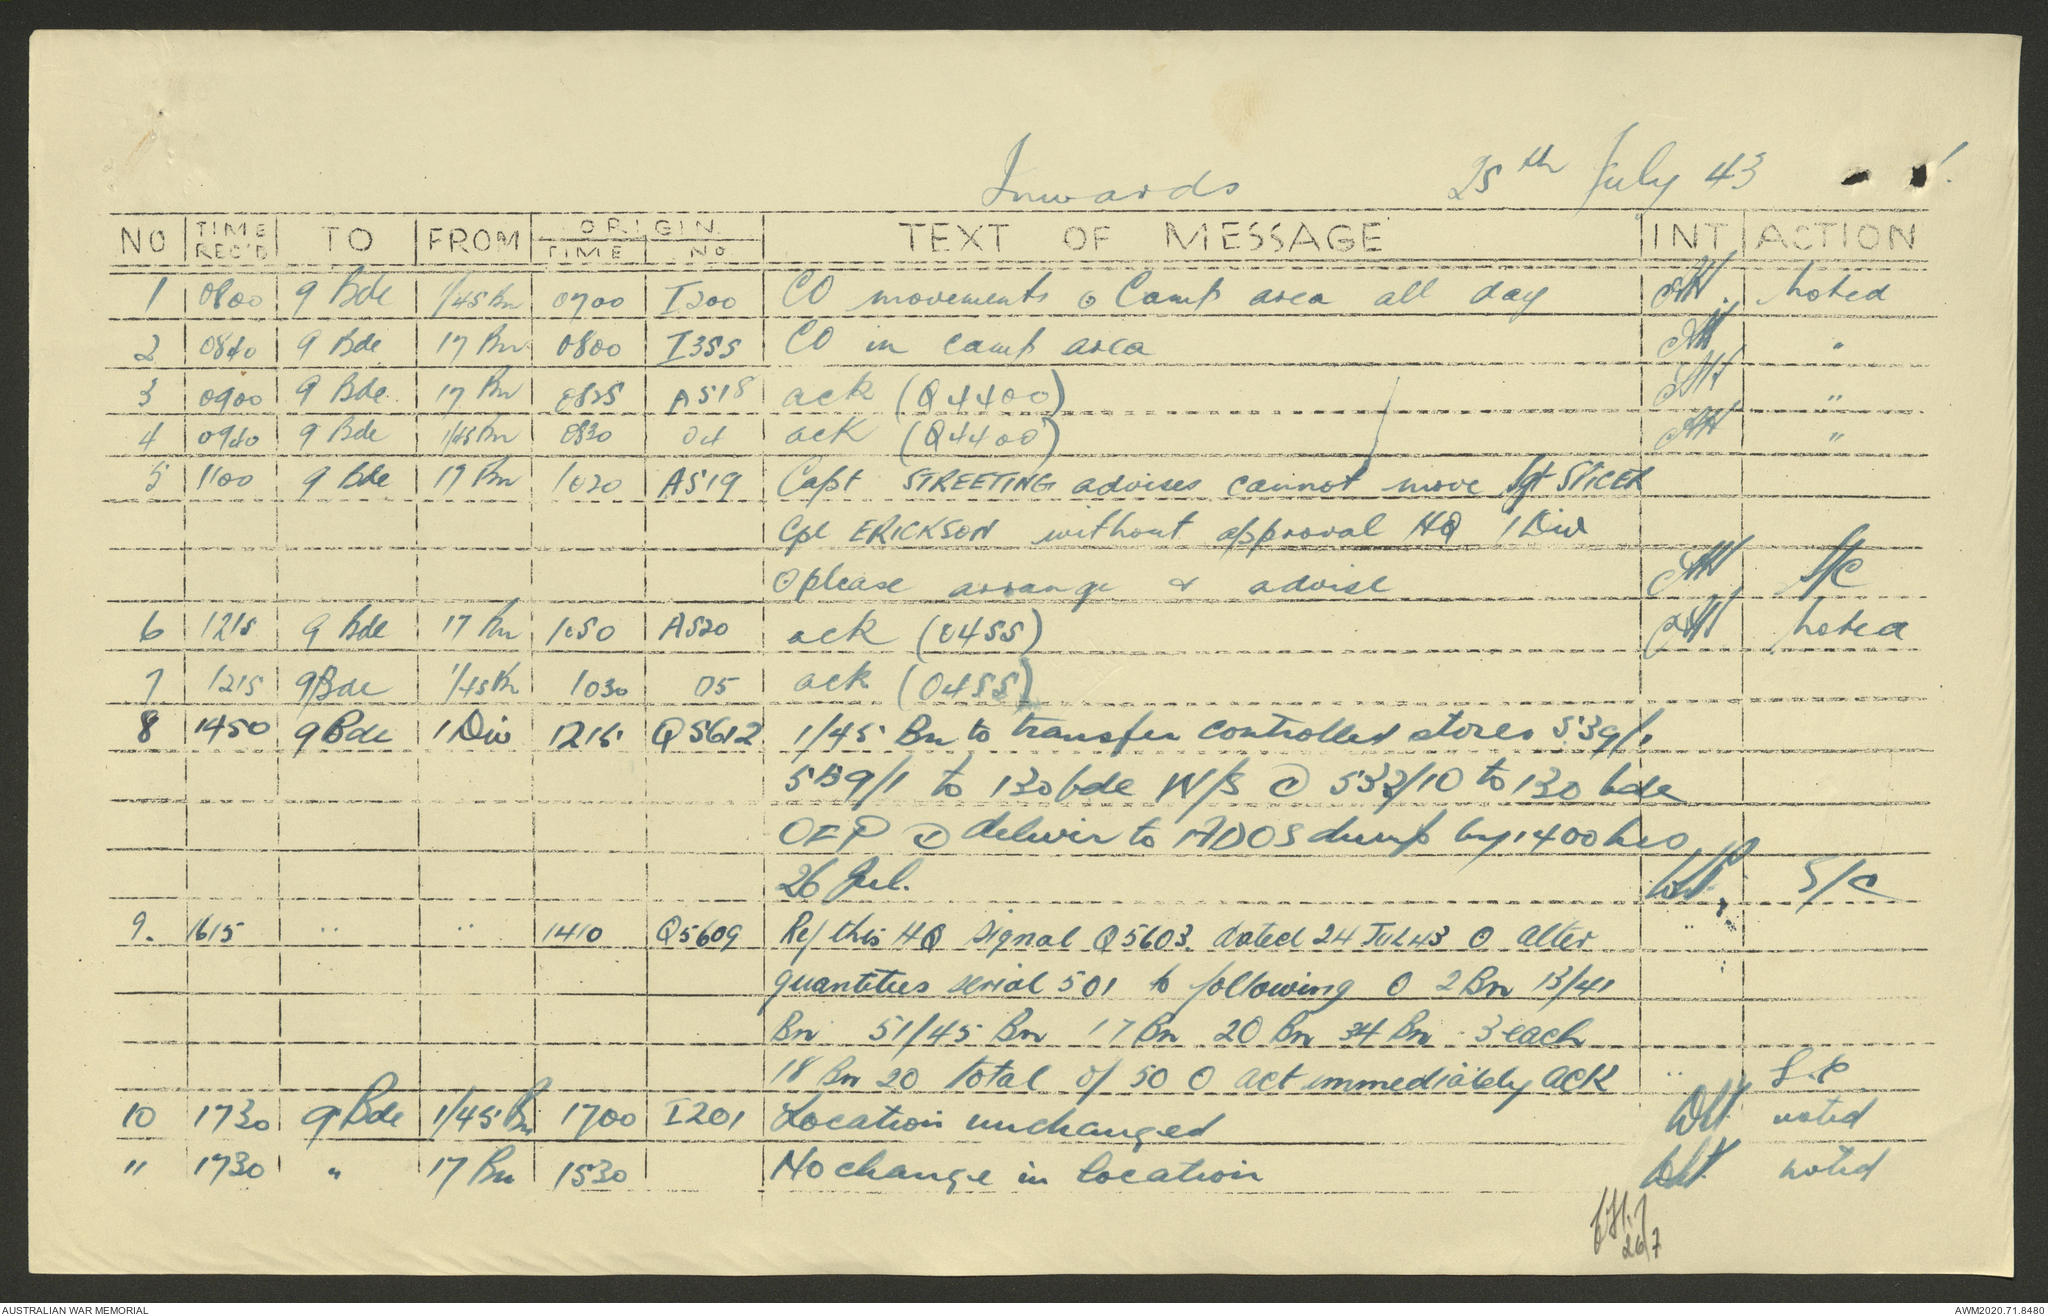 Inwards 25th July 43 1.
NO TIME REC'D TO FROM ORIGIN TIME NO TEXT OF MESSAGE INT ACTION
1 0800 9 Bde 1/45 Bn 0700 I200 CO movements o Camp area all day noted
2 0840 9 Bde 17 Bn 0800 I355 CO in camp area "
3 0900 9 Bde 17 Bn 0825 A518 ack (Q4400) "
4 0940 9 Bde 1/45 Bn 0830 04 ack (Q4400) "
5 1100 9 Bde 17 Bn 1020 A519 Capt STREETING advises cannot move Sgt SPICER
Cpl ERICKSON without approval HQ 1 Div
O please arrange & advise S/C
6 1215 9 Bde 17 Bn 1050 A520 ack (0455) noted
7 1215 9 Bde 1/45 Bn 1030 05 ack (0455)
8 1450 9 Bde 1 Div 1215 Q5612 1/45 Bn to transfer controlled stores 539/1
to 130 bde W/S O 532/10 to 130 bde
O deliver to ADOS dump by 1400 hrs
26 Jul. S/C
9. 1615 " " 1410 Q5609 Ref this HQ signal Q5603 dated 24 JUL 43 O alter "
quantities serial 501 to following O 2 Bn 13/41
Bn 51/45 Bn 17 Bn 20 Bn 34 Bn 3 each
18 Bn 20 total of 50 O act immediately ACK " S.C.
10 1730 9 Bde 1/45 Bn 1700 I201 Location unchanged noted
" 1730 " 17 Bn 1530 No change in location noted
26/7
AUSTRALIAN WAR MEMORIAL AWM2020.71.8480